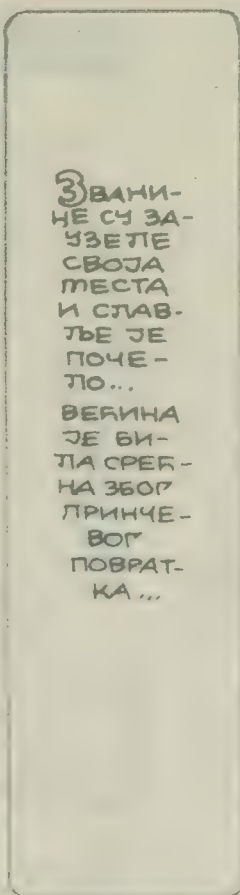 ЗВАНИ-
ЦЕ СУ ЗА-
УЗЕЛЕ
СВОЈА
МЕСТА
И СЛАВ-
ЉЕ ЈЕ
ПОЧЕ-
ЛО...
ВЕЋИНА
ЈЕ БИ-
ЛА СРЕЋ-
НА ЗБОГ
ПРИНЧЕ-
ВОГ
ПОВРАТ-
КА...